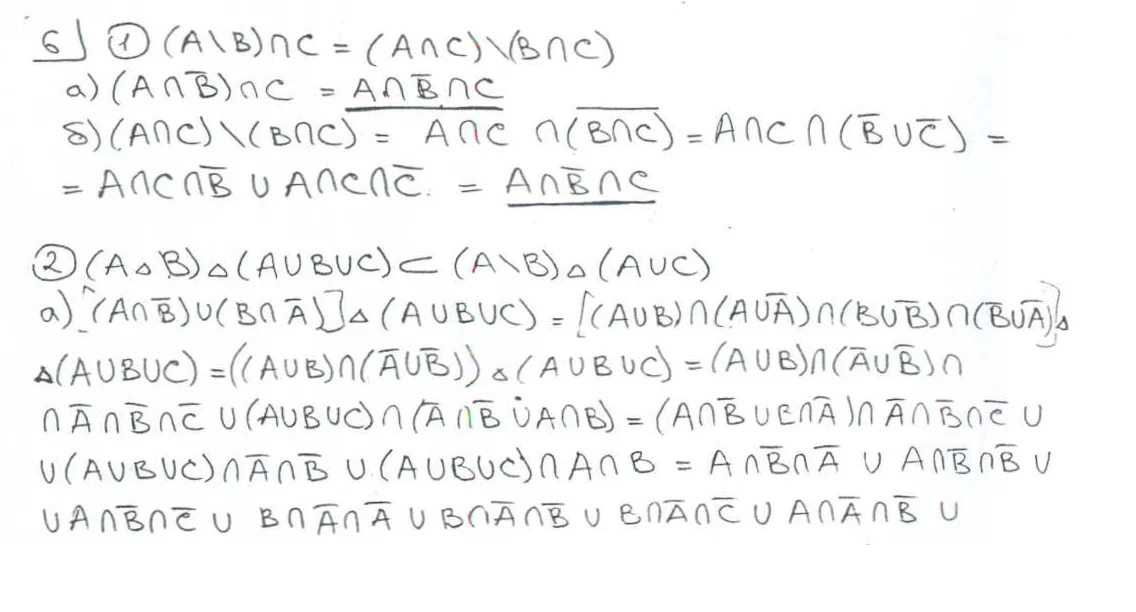 6) ① (A\B)∩C = (A∩C)\(B∩C)
a) (A∩B̅)∩C = A∩B̅∩C
б) (A∩C)\(B∩C) = A∩C ∩(B̅∩̅C̅) = A∩C∩(B̅∪C̅) =
= A∩C∩B̅ ∪ A∩C∩C̅. = A∩B̅∩C
② (A△B)△(A∪B∪C)⊂ (A\B)△(A∪C)
a) [(A∩B̅)∪(B∩A̅)]△(A∪B∪C) = [(A∪B)∩(A∪A̅)∩(B∪B̅)∩(B̅∪A̅)]△
△(A∪B∪C) =((A∪B)∩(A̅∪B̅))△(A∪B∪C) = (A∪B)∩(A̅∪B̅)∩
∩A̅∩B̅∩C̅ ∪(A∪B∪C)∩(A̅∩B̅ ∪A∩B) = (A∩B̅∪B∩A̅)∩A̅∩B̅∩C̅ ∪
∪(A∪B∪C)∩A̅∩B̅ ∪(A∪B∪C)∩A∩B = A∩B̅∩A̅ ∪ A∩B̅∩B̅ ∪
∪A∩B̅∩C̅ ∪ B∩A̅∩A̅ ∪ B∩A̅∩B̅ ∪ B∩A̅∩C̅ ∪ A∩A̅∩B̅ ∪